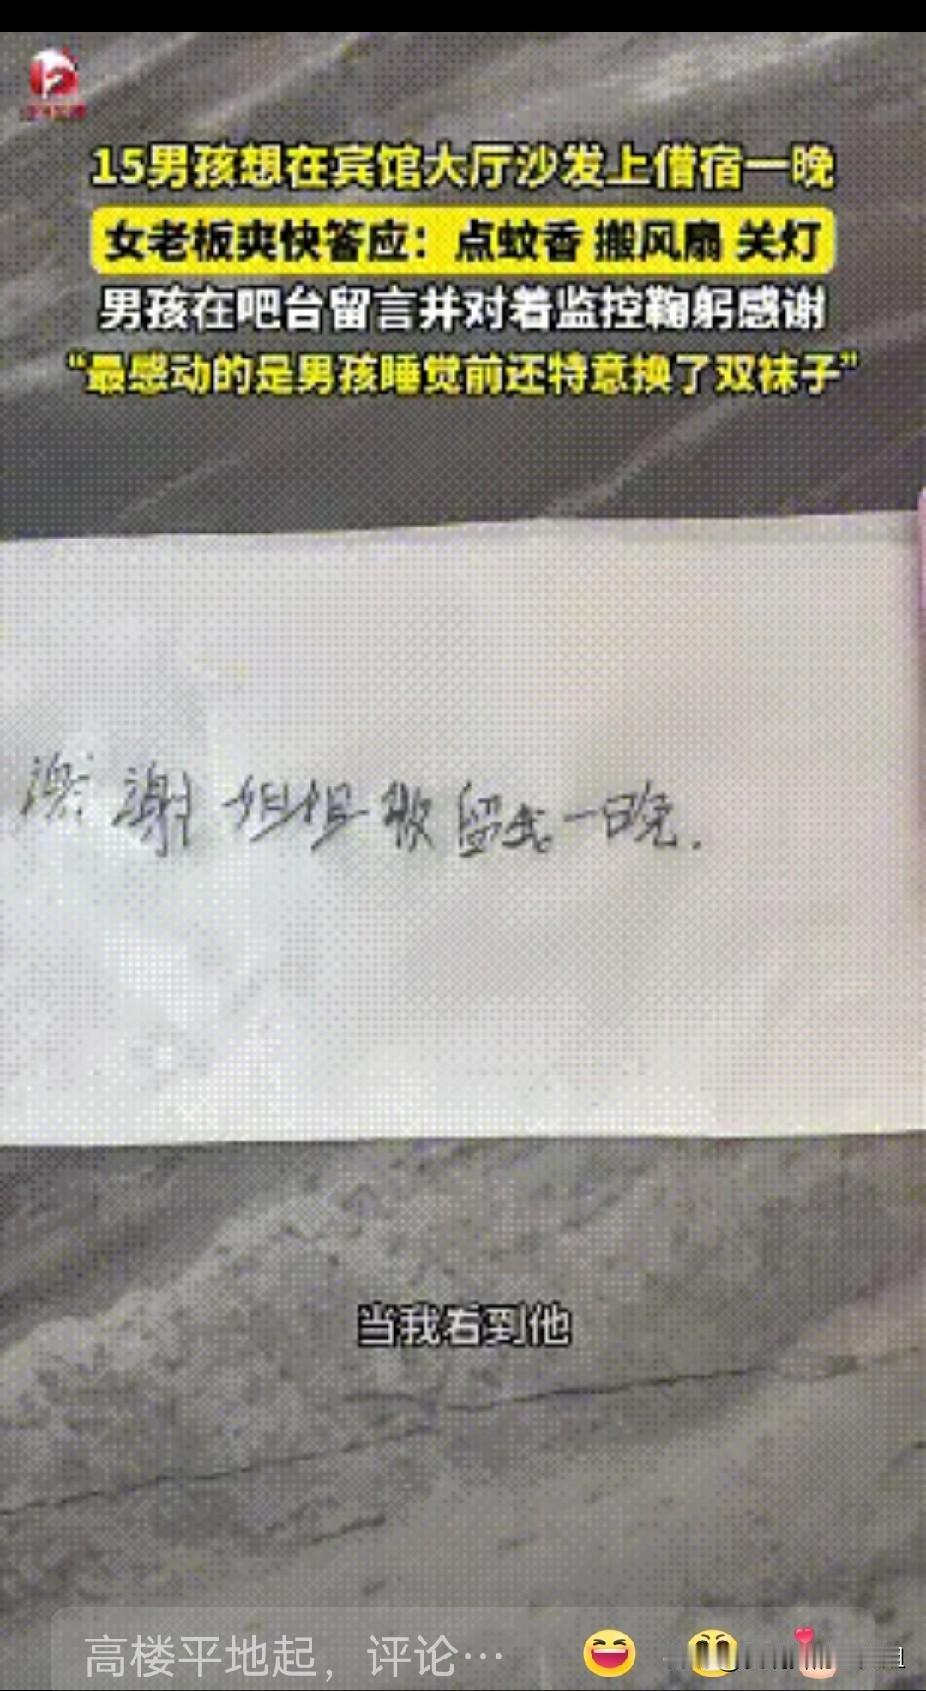 15男孩想在宾馆大厅沙发上借宿一晚
女老板爽快答应：点蚊香 搬风扇 关灯
男孩在吧台留言并对着监控鞠躬感谢
“最感动的是男孩睡觉前还特意换了双袜子”
谢谢姐姐收留我一晚.
当我看到他
高楼平地起，评论…
1